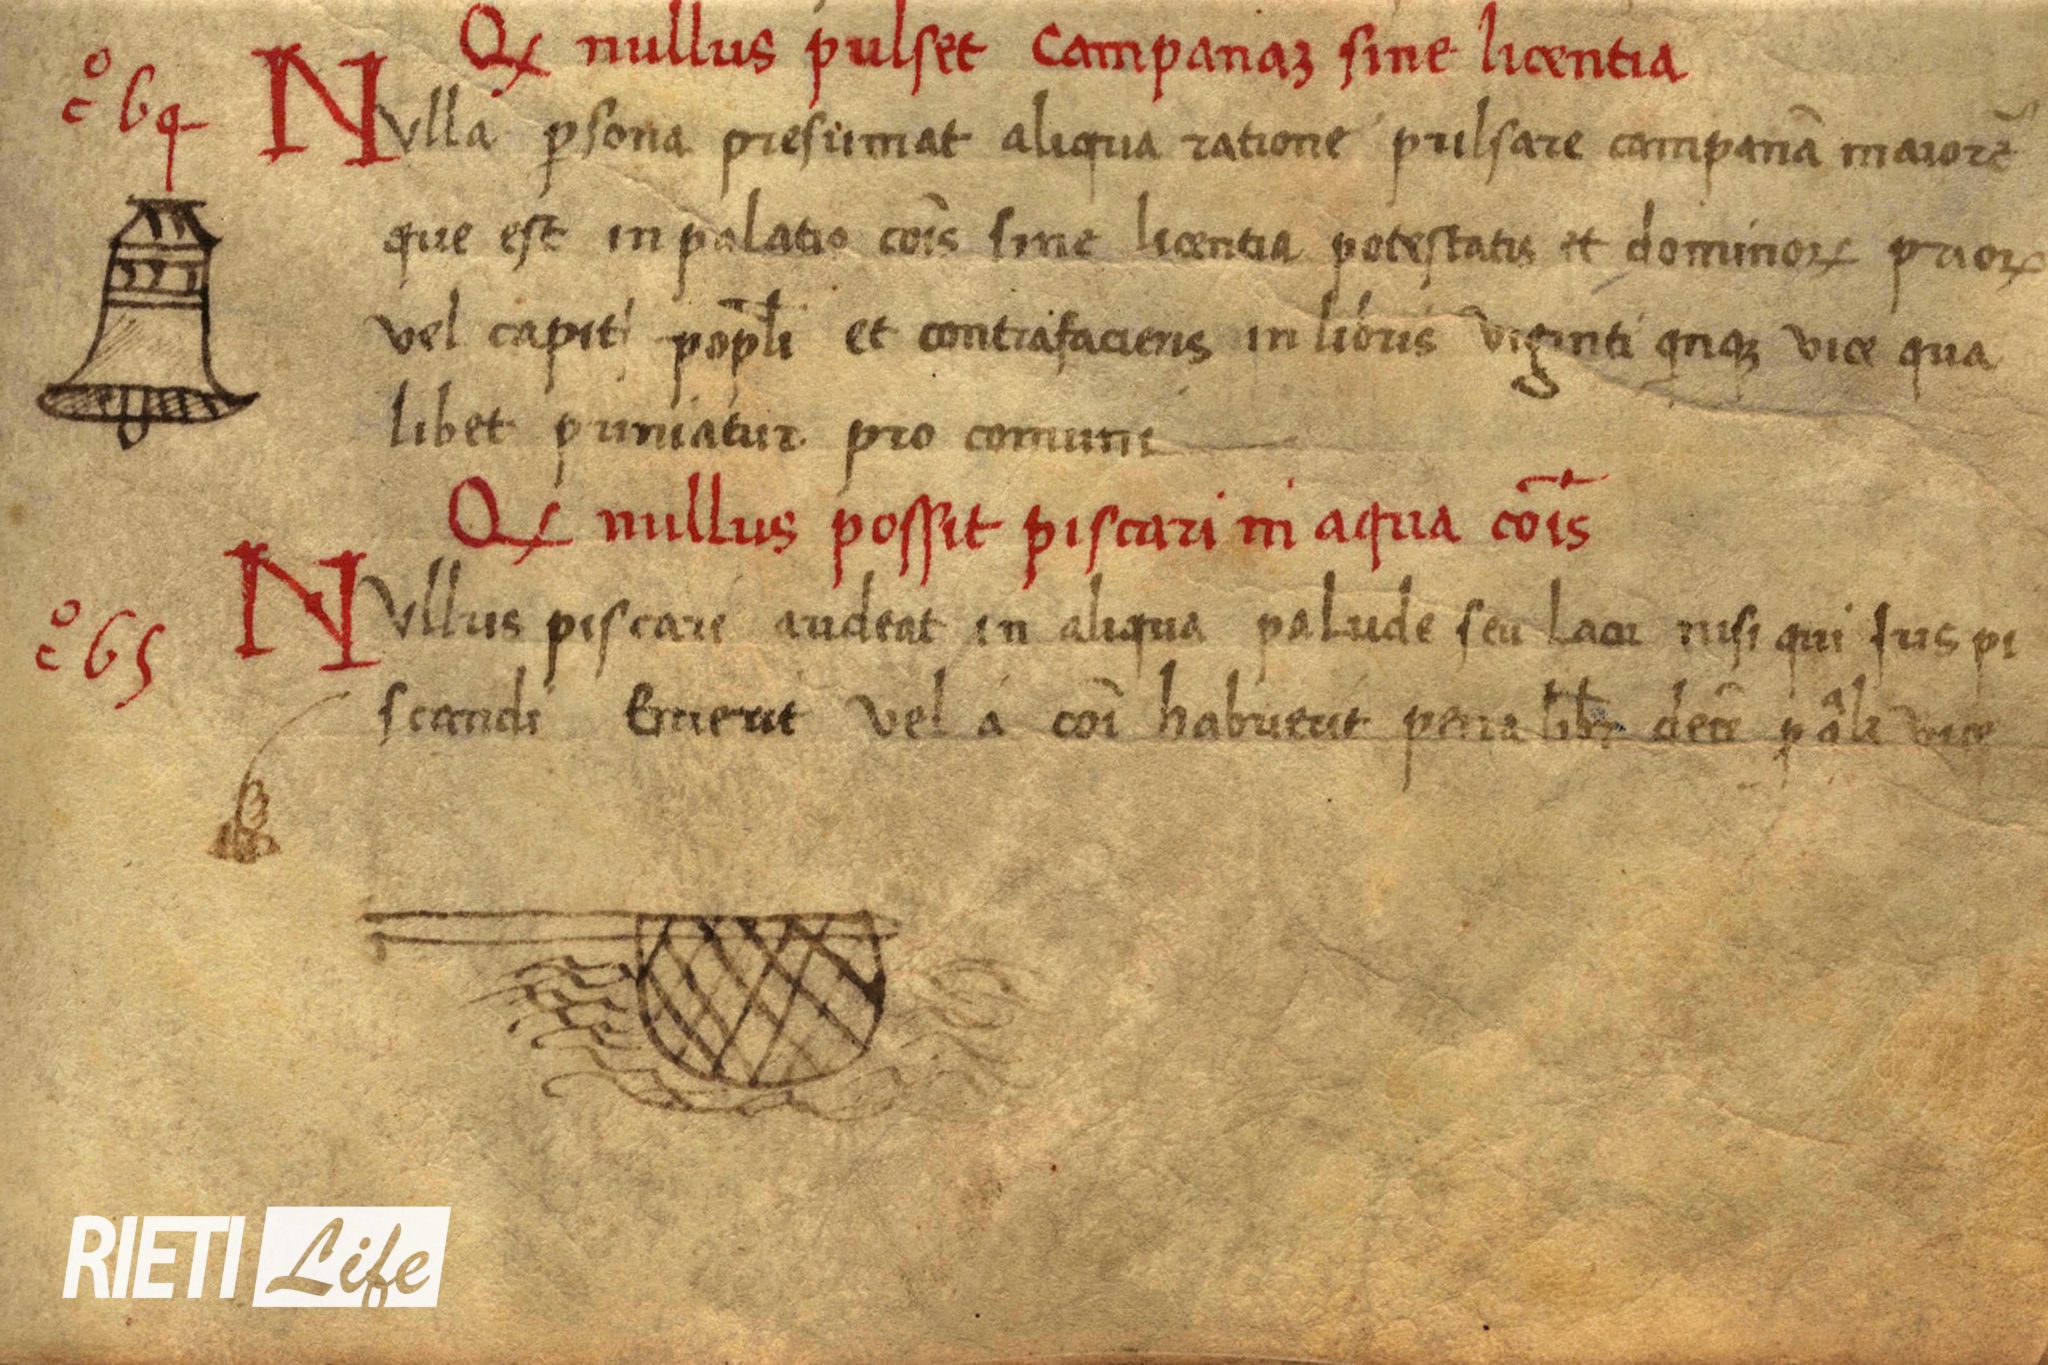 Qꝫ nullus pulset Campanaꝫ sine licentia
cº 64
Nulla ꝑsona presumat aliqua ratione pulsare campanā maiorē
que est in palatio cōis sine licentia potestatis et dominoꝝ prioꝝ
vel capit popl̄i et contrafaciens in libris viginti qnqꝫ vice qua
libet puniatur pro comuni
Qꝫ nullus possit piscari in aqua cōis
cº 65
Nullus piscari audeat in aliqua palude seu lacu nisi qui ius pi
scandi Emerit vel a cōi habuerit pena libr decē vice
RIETI Life